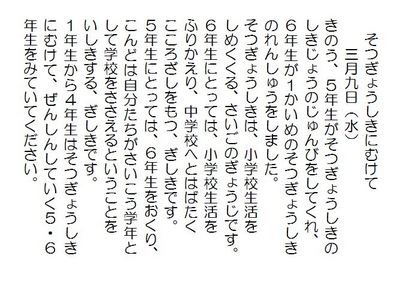 そつぎょうしきにむけて
三月九日（水）
きのう、５年生がそつぎょうしきの
しきじょうのじゅんびをしてくれ、
６年生が１かいめのそつぎょうしき
のれんしゅうをしました。
そつぎょうしきは、小学校生活を
しめくくる、さいごのぎょうじです。
６年生にとっては、小学校生活を
ふりかえり、中学校へとはばたく
こころざしをもつ、ぎしきです。
５年生にとっては、６年生をおくり、
こんどは自分たちがさいこう学年と
して学校をささえるということを
いしきする、ぎしきです。
１年生から４年生はそつぎょうしき
にむけて、ぜんしんしていく５・６
年生をみていてください。